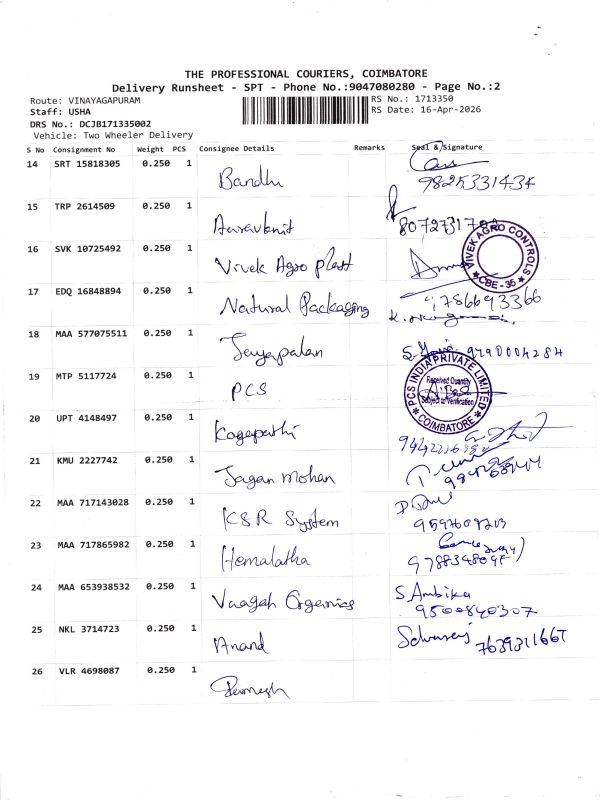 THE PROFESSIONAL COURIERS, COIMBATORE
Delivery Runsheet - SPT - Phone No.:9047080280 - Page No.:2
Route: VINAYAGAPURAM
RS No.: 1713350
Staff: USHA
RS Date: 16-Apr-2026
DRS No.: DCJB171335002
Vehicle: Two Wheeler Delivery
S No Consignment No Weight PCS Consignee Details Remarks Seal &/Signature
14 SRT 15818305 0.250 1 Bandhu
9825331434
15 TRP 2614509 0.250 1
16 SVK 10725492 0.250 1 Vivek Agro Plast
VIVEK AGRO CONTROLS
CBE-35
17 EDQ 16848894 0.250 1 Natural Packaging
9786693366
18 MAA 577075511 0.250 1 Jeyapalan
9790004284
19 MTP 5117724 0.250 1 PCS
PCS INDIA PRIVATE LIMITED
Received Quantity
Subject to Verification
COIMBATORE
20 UPT 4148497 0.250 1
21 KMU 2227742 0.250 1 Jagan mohan
22 MAA 717143028 0.250 1 KSR System
23 MAA 717865982 0.250 1 Hemalatha
24 MAA 653938532 0.250 1 Vaagah Organics S. Ambika
9500840307
25 NKL 3714723 0.250 1 Anand
7639311667
26 VLR 4698087 0.250 1